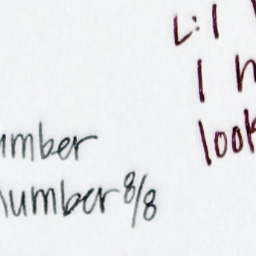 L: I
I
look
umber
Number 8/8